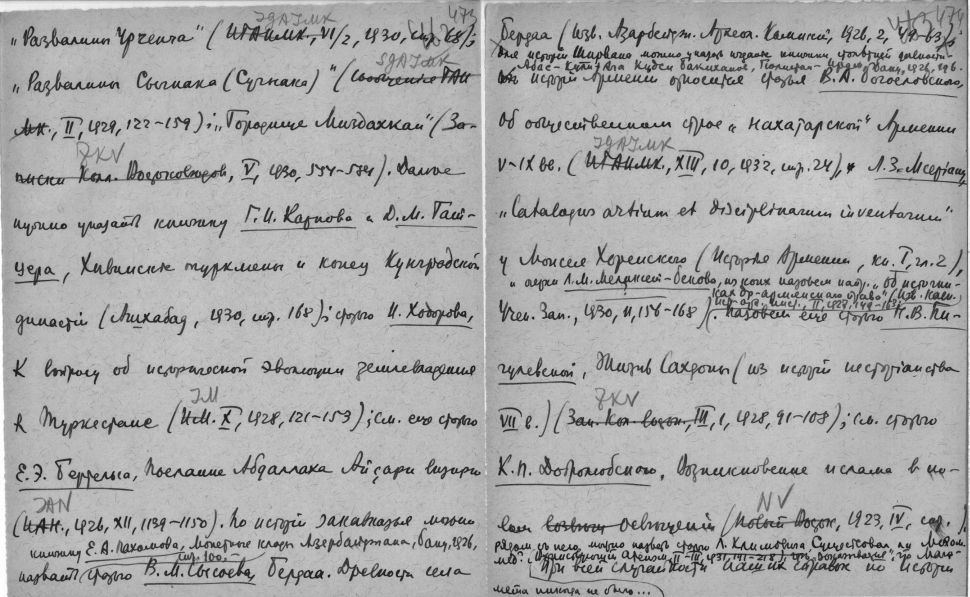 473
ЗДАТМК
„Развалины Ургенча“ (ИГАИМК, VI/2, 1930, стр. 68);
SДАТМК
„Развалины Сыгнака (Сугнака)“ (Сообщения ГАИ
МК., II, 1929, 122–159); „Городище Миздахкан“ (За-
ZKV
писки Колл. Востоковедов, V, 1930, 551–584). Далее
нужно указать книжку Г. И. Карпова и Д. М. Бат-
цера, Хивинские туркмены и конец Кунградской
династии (Ашхабад, 1930, стр. 168); статью И. Ходорова,
К вопросу об исторической эволюции землевладения
JM
в Туркестане (ИМ. X, 1928, 121–153); см. его статью
Е. Э. Бертельса, Послание Абдаллаха Ансари везиру
JAN
(ИАН., 1926, XII, 1139–1150). По истории Закавказья можно
книжку Е. А. Пахомова, Монетные клады Азербайджана, Баку, 1926,
стр. 100.
назвать статью В. М. Сысоева, Бердаа. Древности села
474
Бердаа (Изв. Азербейдж. Археол. Комитета, 1926, 2,
Для истории Ширвана можно указать издание книжки
Аббас-Кули Ага Кудси Бакиханов, Баку, 1926, 196.
К истории Армении относится статья В. А. Богословского,
Об общественном строе „нахарарской“ Армении
ЗДАТМК
V–IX вв. (ИГАИМК, XIII, 10, 1932, стр. 24), Л. З. Мсерианц
„Catalogus artium et disciplinarum inventarum“
у Моисея Хоренского (История Армении, кн. I, гл. 2),
и Л. М. Меликсет-Бекова, из коих назовем „Об источни-
ках др-армянского права“ (Изв. Кавк.
Ист.-арх. Инст., II,
Учен. Зап., 1930, II, 156–168). Назовем еще статью Н. В. Пи-
гулевской, Жизнь Сахдоны (из истории несторианства
ZKV
VII в.) (Зап. Кол. Восток., III, 1, 1928, 91–108); см. статью
К. П. Добролюбского, Возникновение ислама в но-
NV
вом освещении (Новый Восток, 1923, IV, стр. ).
рядом с нею можно назвать статью Л. Климовича Существовал ли Мохам-
мед?
При всей случайности наших справок по истории
мета никогда не было...